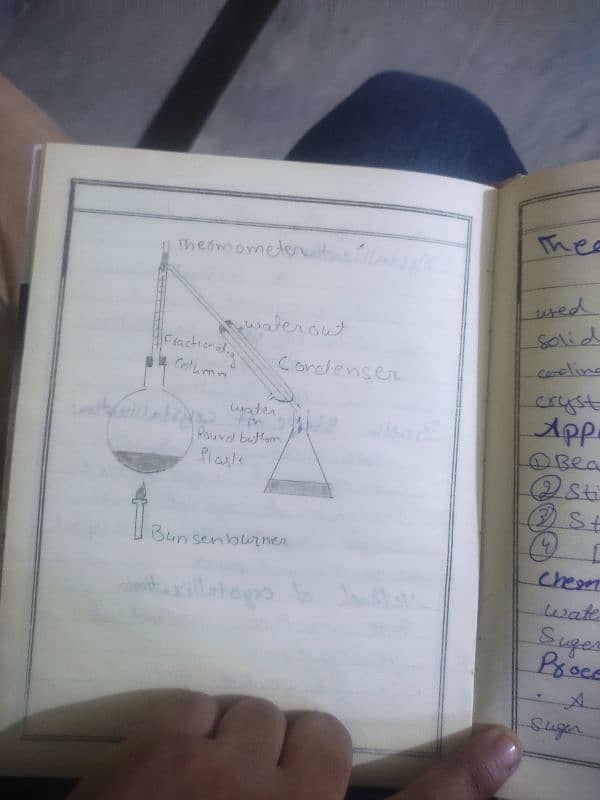 Thermometer
water out
Fractionating
Column
Condenser
water
in
Round bottom
flask
Bunsenburner
used
solid
cryst
App
① Bea
② Sti
③ St
④
Chem
wate
Suger
Proce
. A
suger